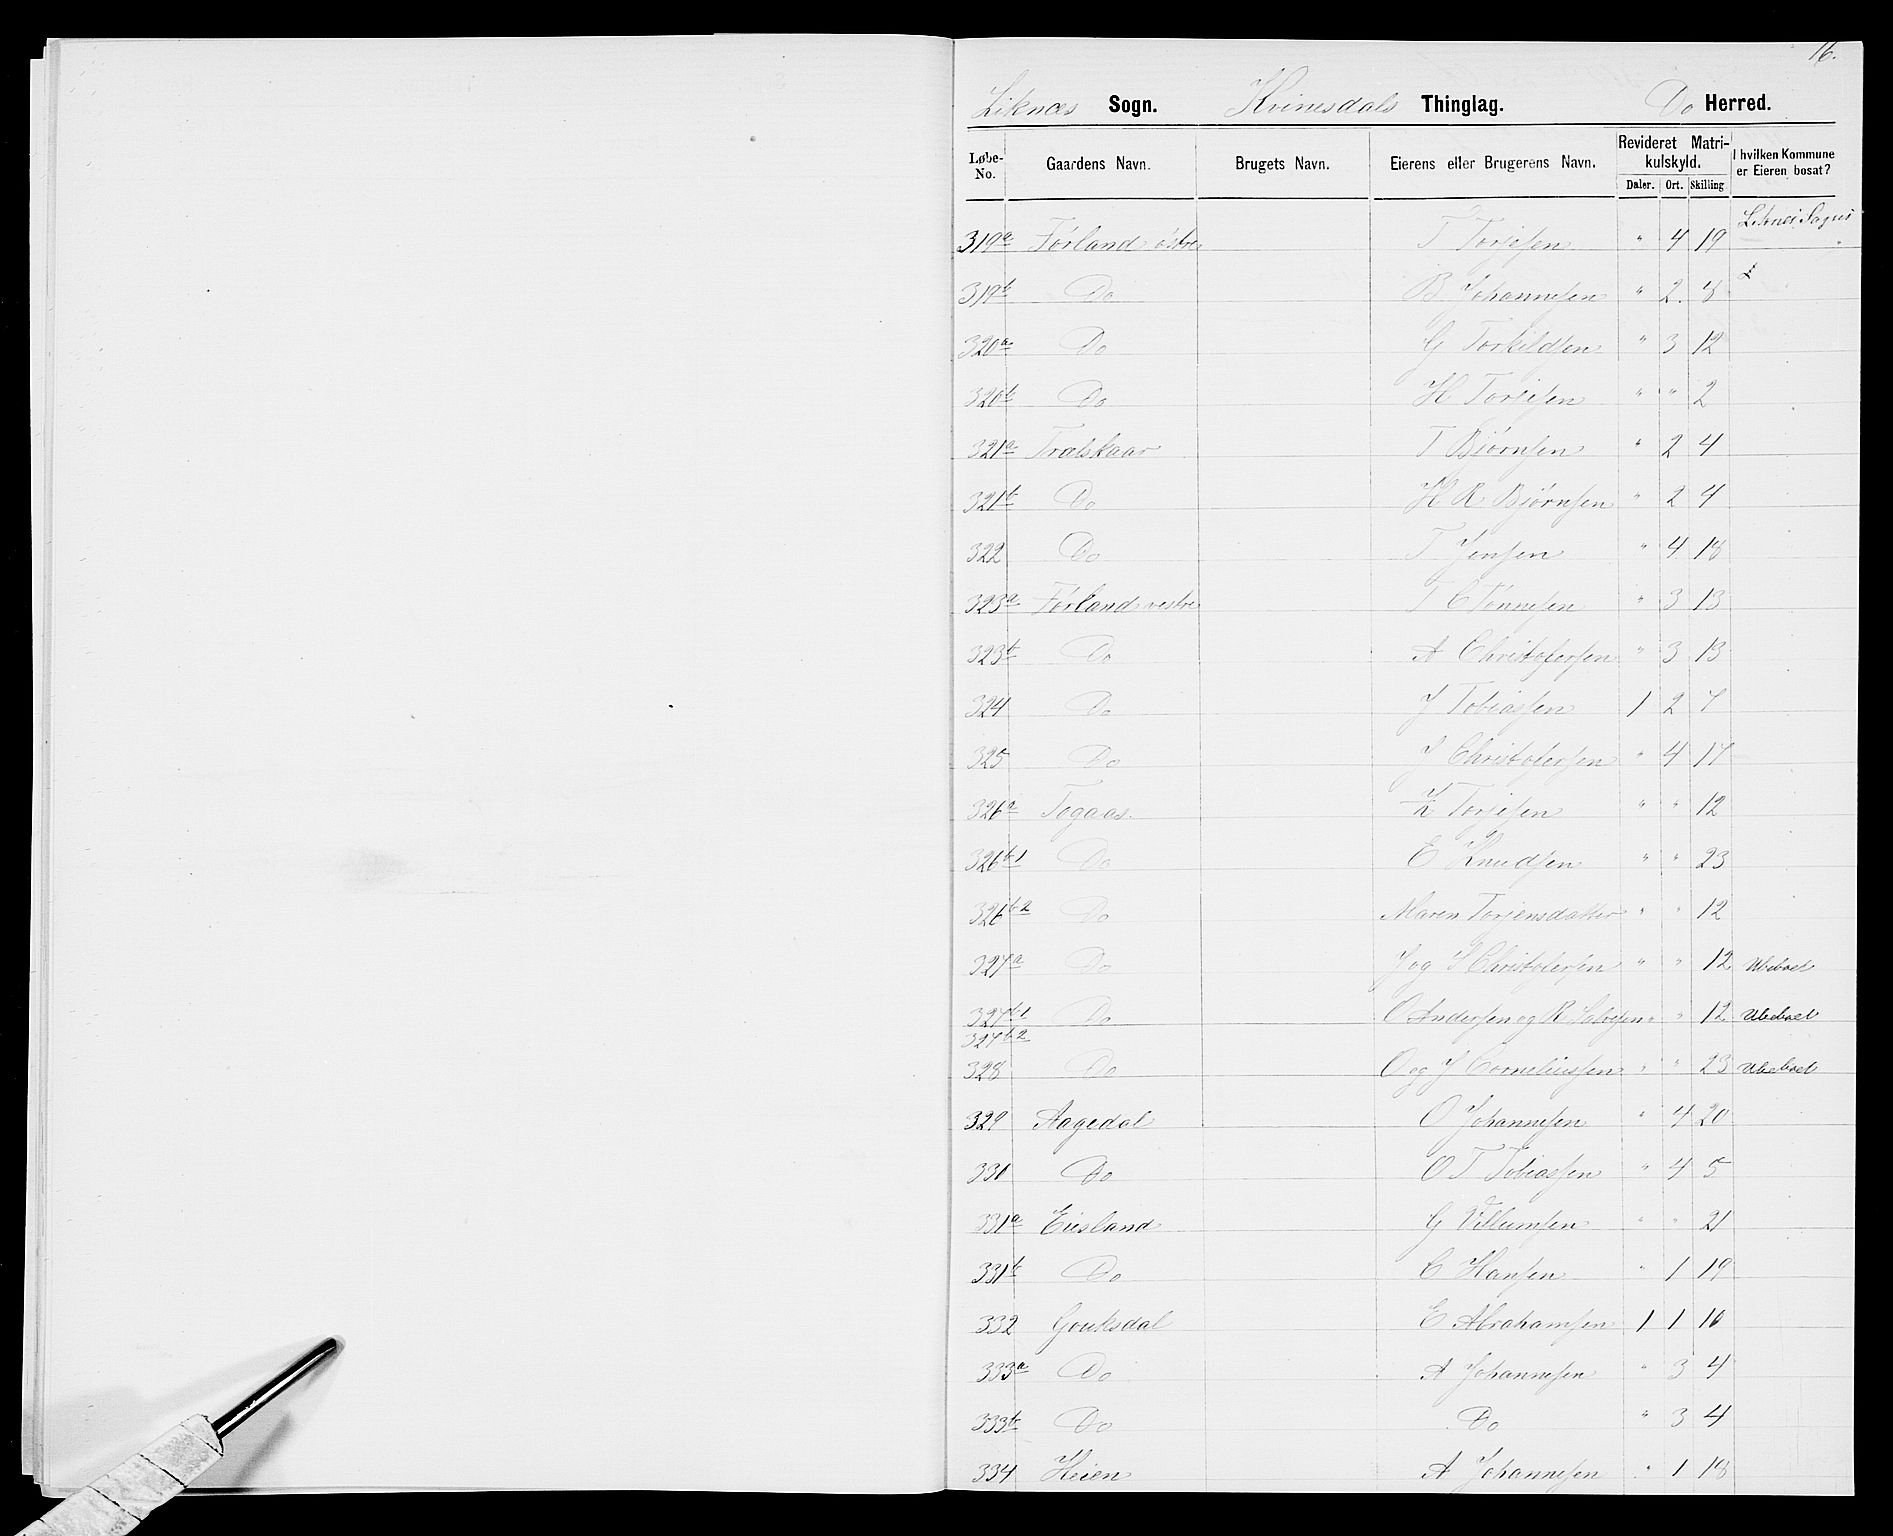 16.
Liknæs Sogn. Kvinesdals Thinglag. Do Herred.
Løbe-No. Gaardens Navn. Brugets Navn. Eierens eller Brugerens Navn. Revideret Matrikulskyld. I hvilken Kommune er Eieren bosat?
Daler. Ort. Skilling
319a Førland østre T Torjesen " 4 19 Liknes Sogn
319b Do B. Johannesen " 2. 8
320a Do G Torkildsen " 3 12
320b Do H Torjesen " " 2
321a Trælskaar T Bjørnsen " 2 4
321b Do H R Bjørnsen " 2 4
322 Do T Jensen " 4 18
323a Førland vestre T C Tønnesen " 3 13
323b Do A Christofersen " 3 13
324 Do J Tobiassen 1 2 7
325 Do J Christofersen " 4 17
326a Togaas. K Torjesen " " 12
326b1 Do E Knudsen " " 23
326b2 Do Maren Torjensdatter " " 12
327a Do J og S Christofersen " " 12 Ubeboet
327b1 Do O Andersen og R Salvesen " " 12 Ubeboet
327b2
328 Do O og J Corneliussen " " 23 Ubeboet
329 Aagedal O Johannesen " 4 20
330 Do O T Tobiassen " 4 5
331a Eiesland G Villumsen " " 21
331b Do C Hansen " 1 19
332 Gouksdal E Abrahamsen 1 1 10
333a Do A Johannesen " 3 4
333b Do Do " 3 4
334 Heien A Johannesen " 1 18